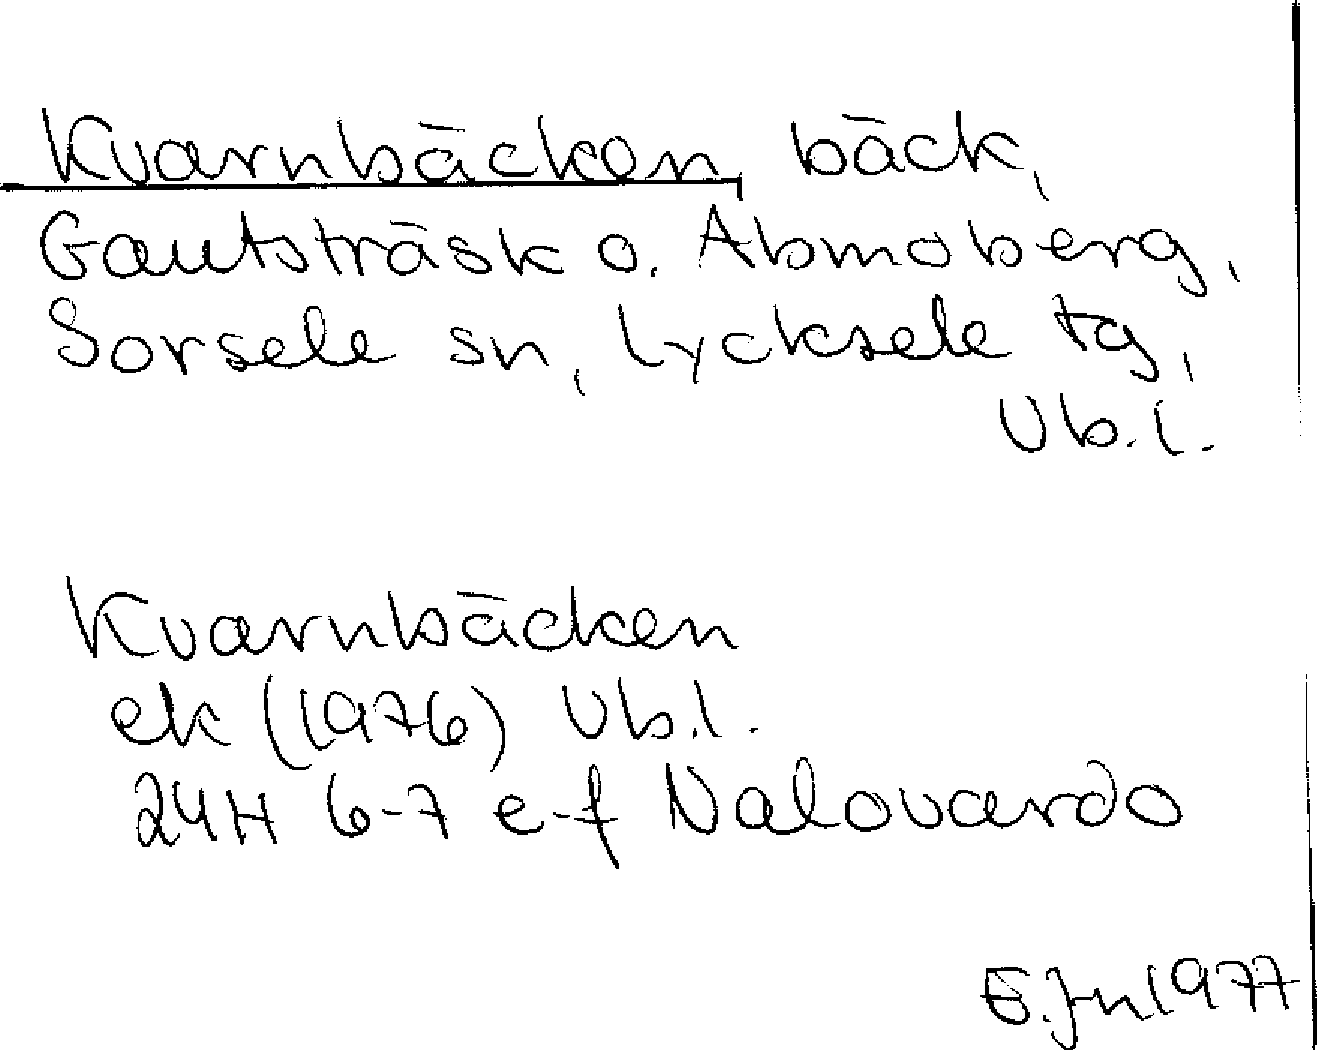 Kvarnbäcken, bäck,
Gautsträsk o. Abmoberg,
Sorsele sn, Lycksele tg,
Vb.l.
Kvarnbäcken
ek (1976) Vb.l.
24H 6-7 e-f Nalovardo
E.Jn 1977